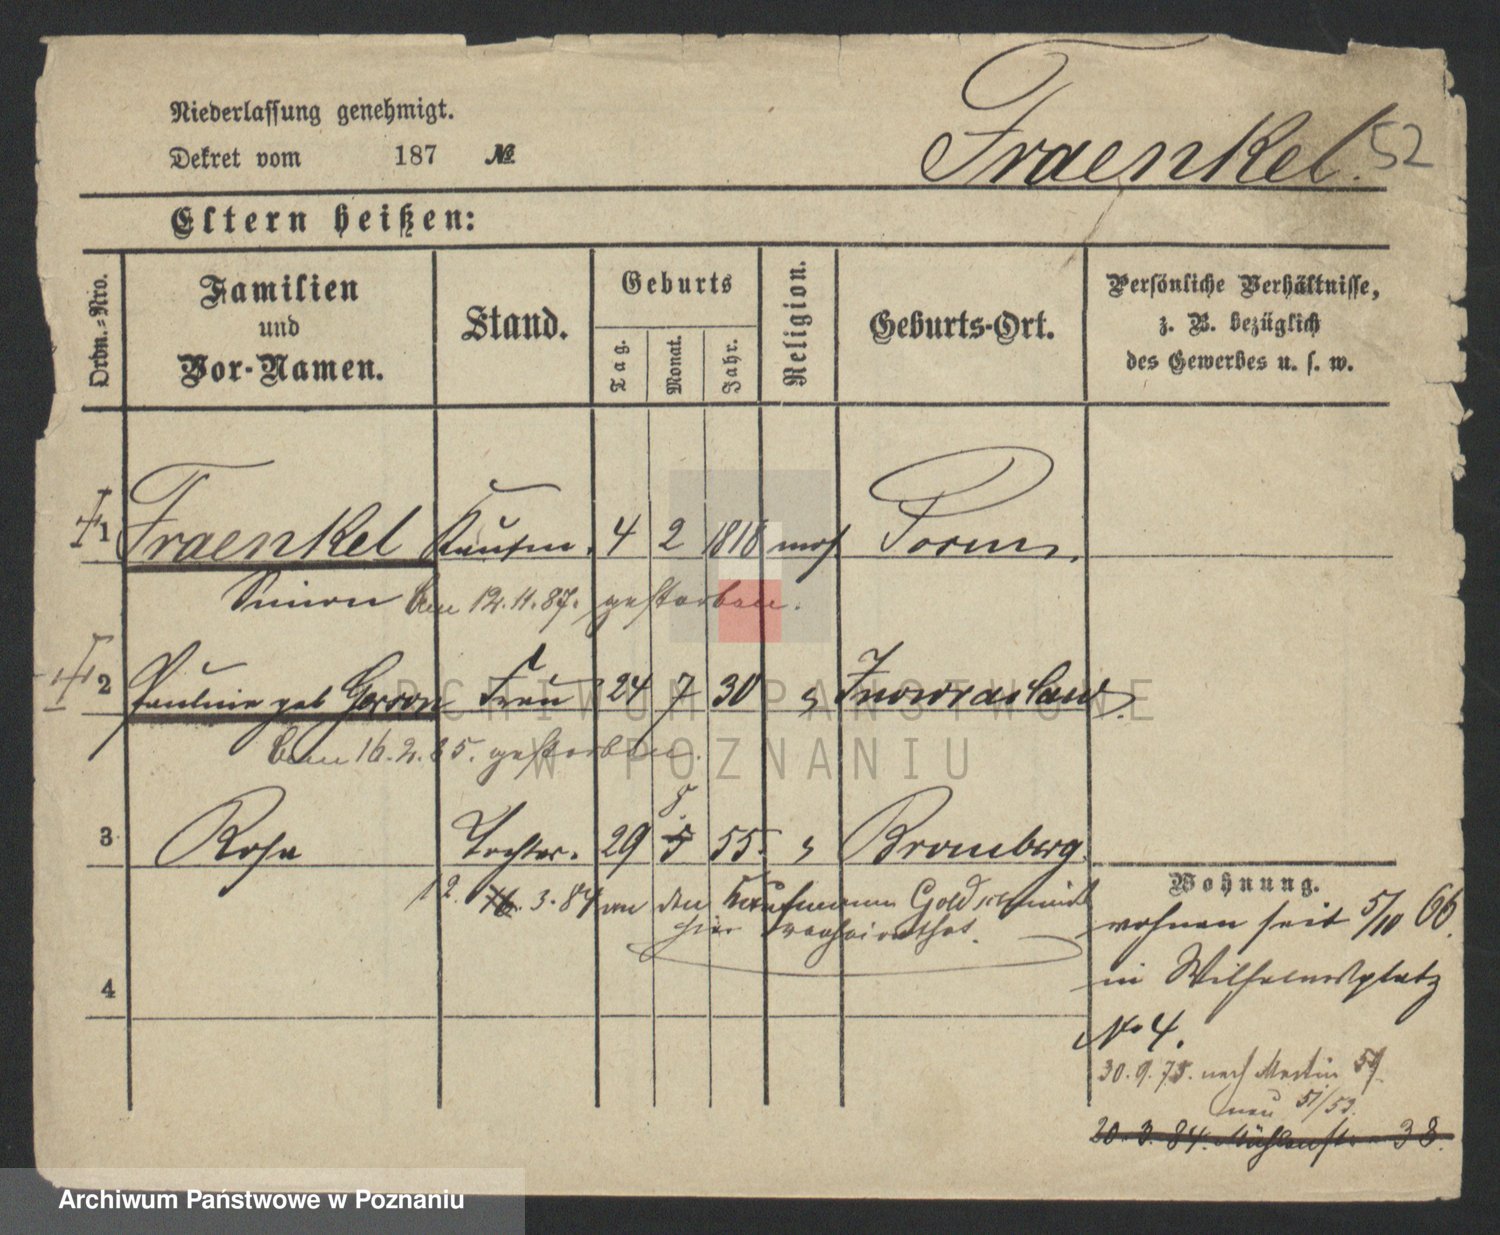 Niederlassung genehmigt.
Dekret vom 187 №
Fraenkel. 52
Eltern heißen:
Ordn.-Nro.
Familien und Vor-Namen.
Stand.
Geburts
Tag.
Monat.
Jahr.
Religion.
Geburts-Ort.
Persönliche Verhältnisse,
z. B. bezüglich
des Gewerbes u. s. w.
1 Fraenkel Kaufm. 4 2 1818 mos
Simon den 12.11.87. gestorben.
2 Pauline geb Gerson Frau 24 7 30 " Inowraslaw
Den 16.2.85. gestorben.
3 Rosa Tochter. 29 5 8. 55. " Bromberg.
12. 16. 3.84 an den Kaufmann Goldschmidt
hier verheirathet.
4
Wohnung.
wohnen seit 5/10 66.
in Wilhelmsplatz
No 4.
30.9.75. nach Martin 59
neu 51/52.
20.3.84. Mühlenstr. 38.
ARCHIWUM PAŃSTWOWE
W POZNANIU
Archiwum Państwowe w Poznaniu